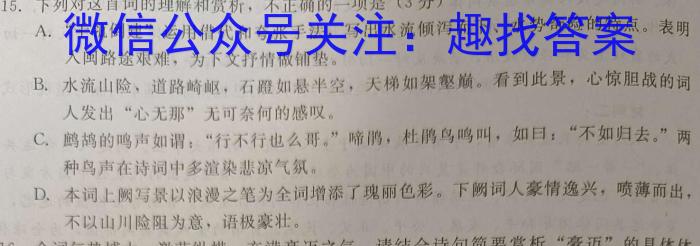 15. 下列对这首词的理解和赏析，不正确的一项是（3分）
微信公众号关注：趣找答案
A.
运用借代和夸张手法，写出水流倾泻
的特点。表明
入闽路途艰难，为下文抒情做铺垫。
B. 水流山险、道路崎岖，石蹬如悬半空，天梯如架壑巅。看到此景，心惊胆战的词
人发出“心无那”无可奈何的感叹。
C. 鹧鸪的鸣声如谓：“行不行也么哥。”啼鹃，杜鹃鸟鸣叫，如曰：“不如归去。”两
种鸟声在诗词中多渲染悲凉气氛。
D. 本词上阙写景以浪漫之笔为全词增添了瑰丽色彩。下阙词人豪情逸兴，喷薄而出，
不以山川险阻为意，语极豪壮。
请结合诗句简要赏析“豪迈”的具体体